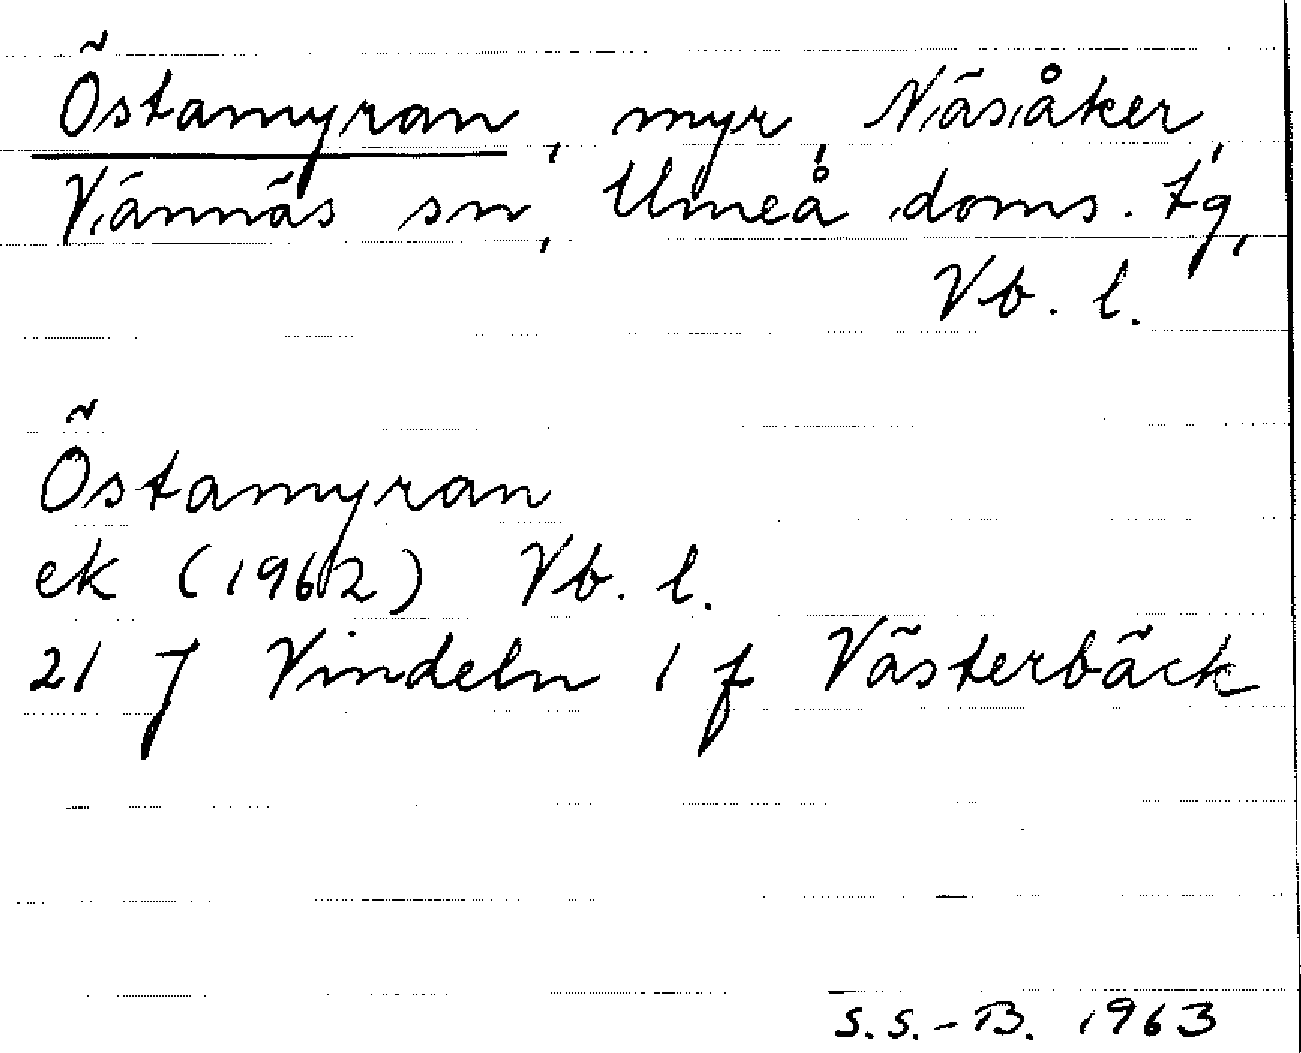 Östamyran, myr, Näsåker,
Vännäs sn, Umeå doms. tg,
Vb. l.
Östamyran
ek (1962) Vb. l.
21 J Vindeln 1 f Västerbäck
S.S.-B. 1963